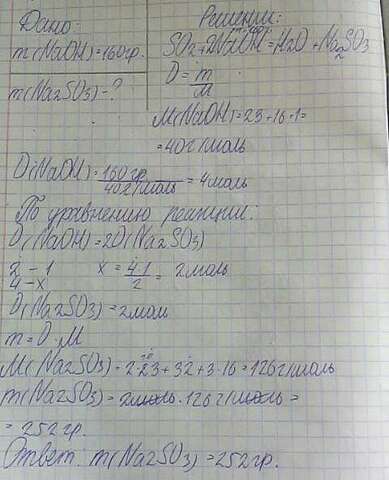 Дано:
m(NaOH)=160гр.
m(Na2SO3)-?
Решение:
SO2+2NaOH=H2O+Na2SO3
D=m/M
M(NaOH)=23+16+1=
=40г/моль
D(NaOH)=160гр/40г/моль=4моль
По уравнению реакции:
D(NaOH)=2D(Na2SO3)
2-1
4-x
x=4·1/2=2моль
D(Na2SO3)=2моль
m=D·M
M(Na2SO3)=2·23+32+3·16=126г/моль
m(Na2SO3)=2моль·126г/моль=
=252гр.
Ответ: m(Na2SO3)=252гр.